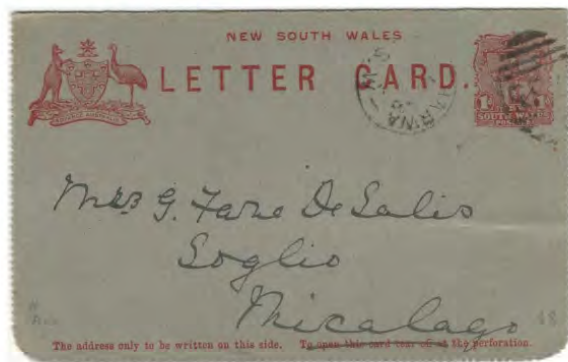 NEW SOUTH WALES
LETTER CARD.
SOUTH WALES
Mrs G. Fane De Salis
Soglio
Micalago
The address only to be written on this side. To open this card tear off at the perforation.